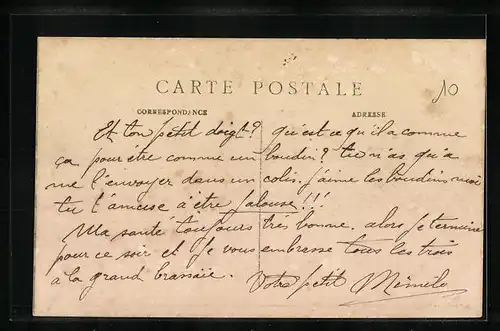 10
CARTE POSTALE
CORRESPONDANCE
ADRESSE
Et ton petit doigt? qu'est ce qu'il a comme
ça pour être comme un boudin? tu n'as qu'à
me l'envoyer dans un colis, j'aime les boudins moi
tu t'amuse à être jalouse!!!
Ma santé toujours très bonne. alors je termine
pour ce soir et je vous embrasse tous les trois
à la grand brassaie.
Votre petit Mémile